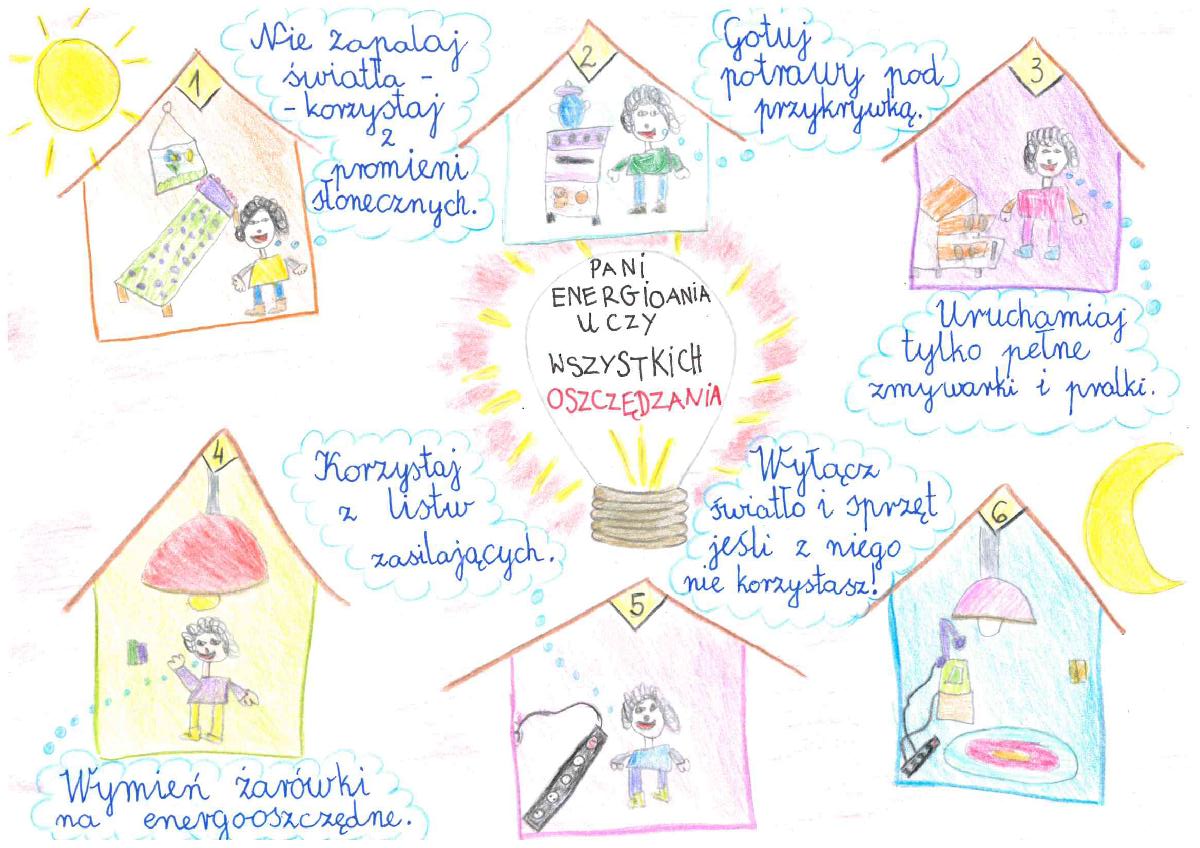 1
Nie zapalaj
światła -
- korzystaj
z
promieni
słonecznych.
2
Gotuj
potrawy pod
przykrywką.
3
Uruchamiaj
tylko pełne
zmywarki i pralki.
PANI
ENERGIOANIA
UCZY
WSZYSTKICH
OSZCZĘDZANIA
4
Wymień żarówki
na energooszczędne.
Korzystaj
z listw
zasilających.
5
Wyłącz
światło i sprzęt
jeśli z niego
nie korzystasz!
6